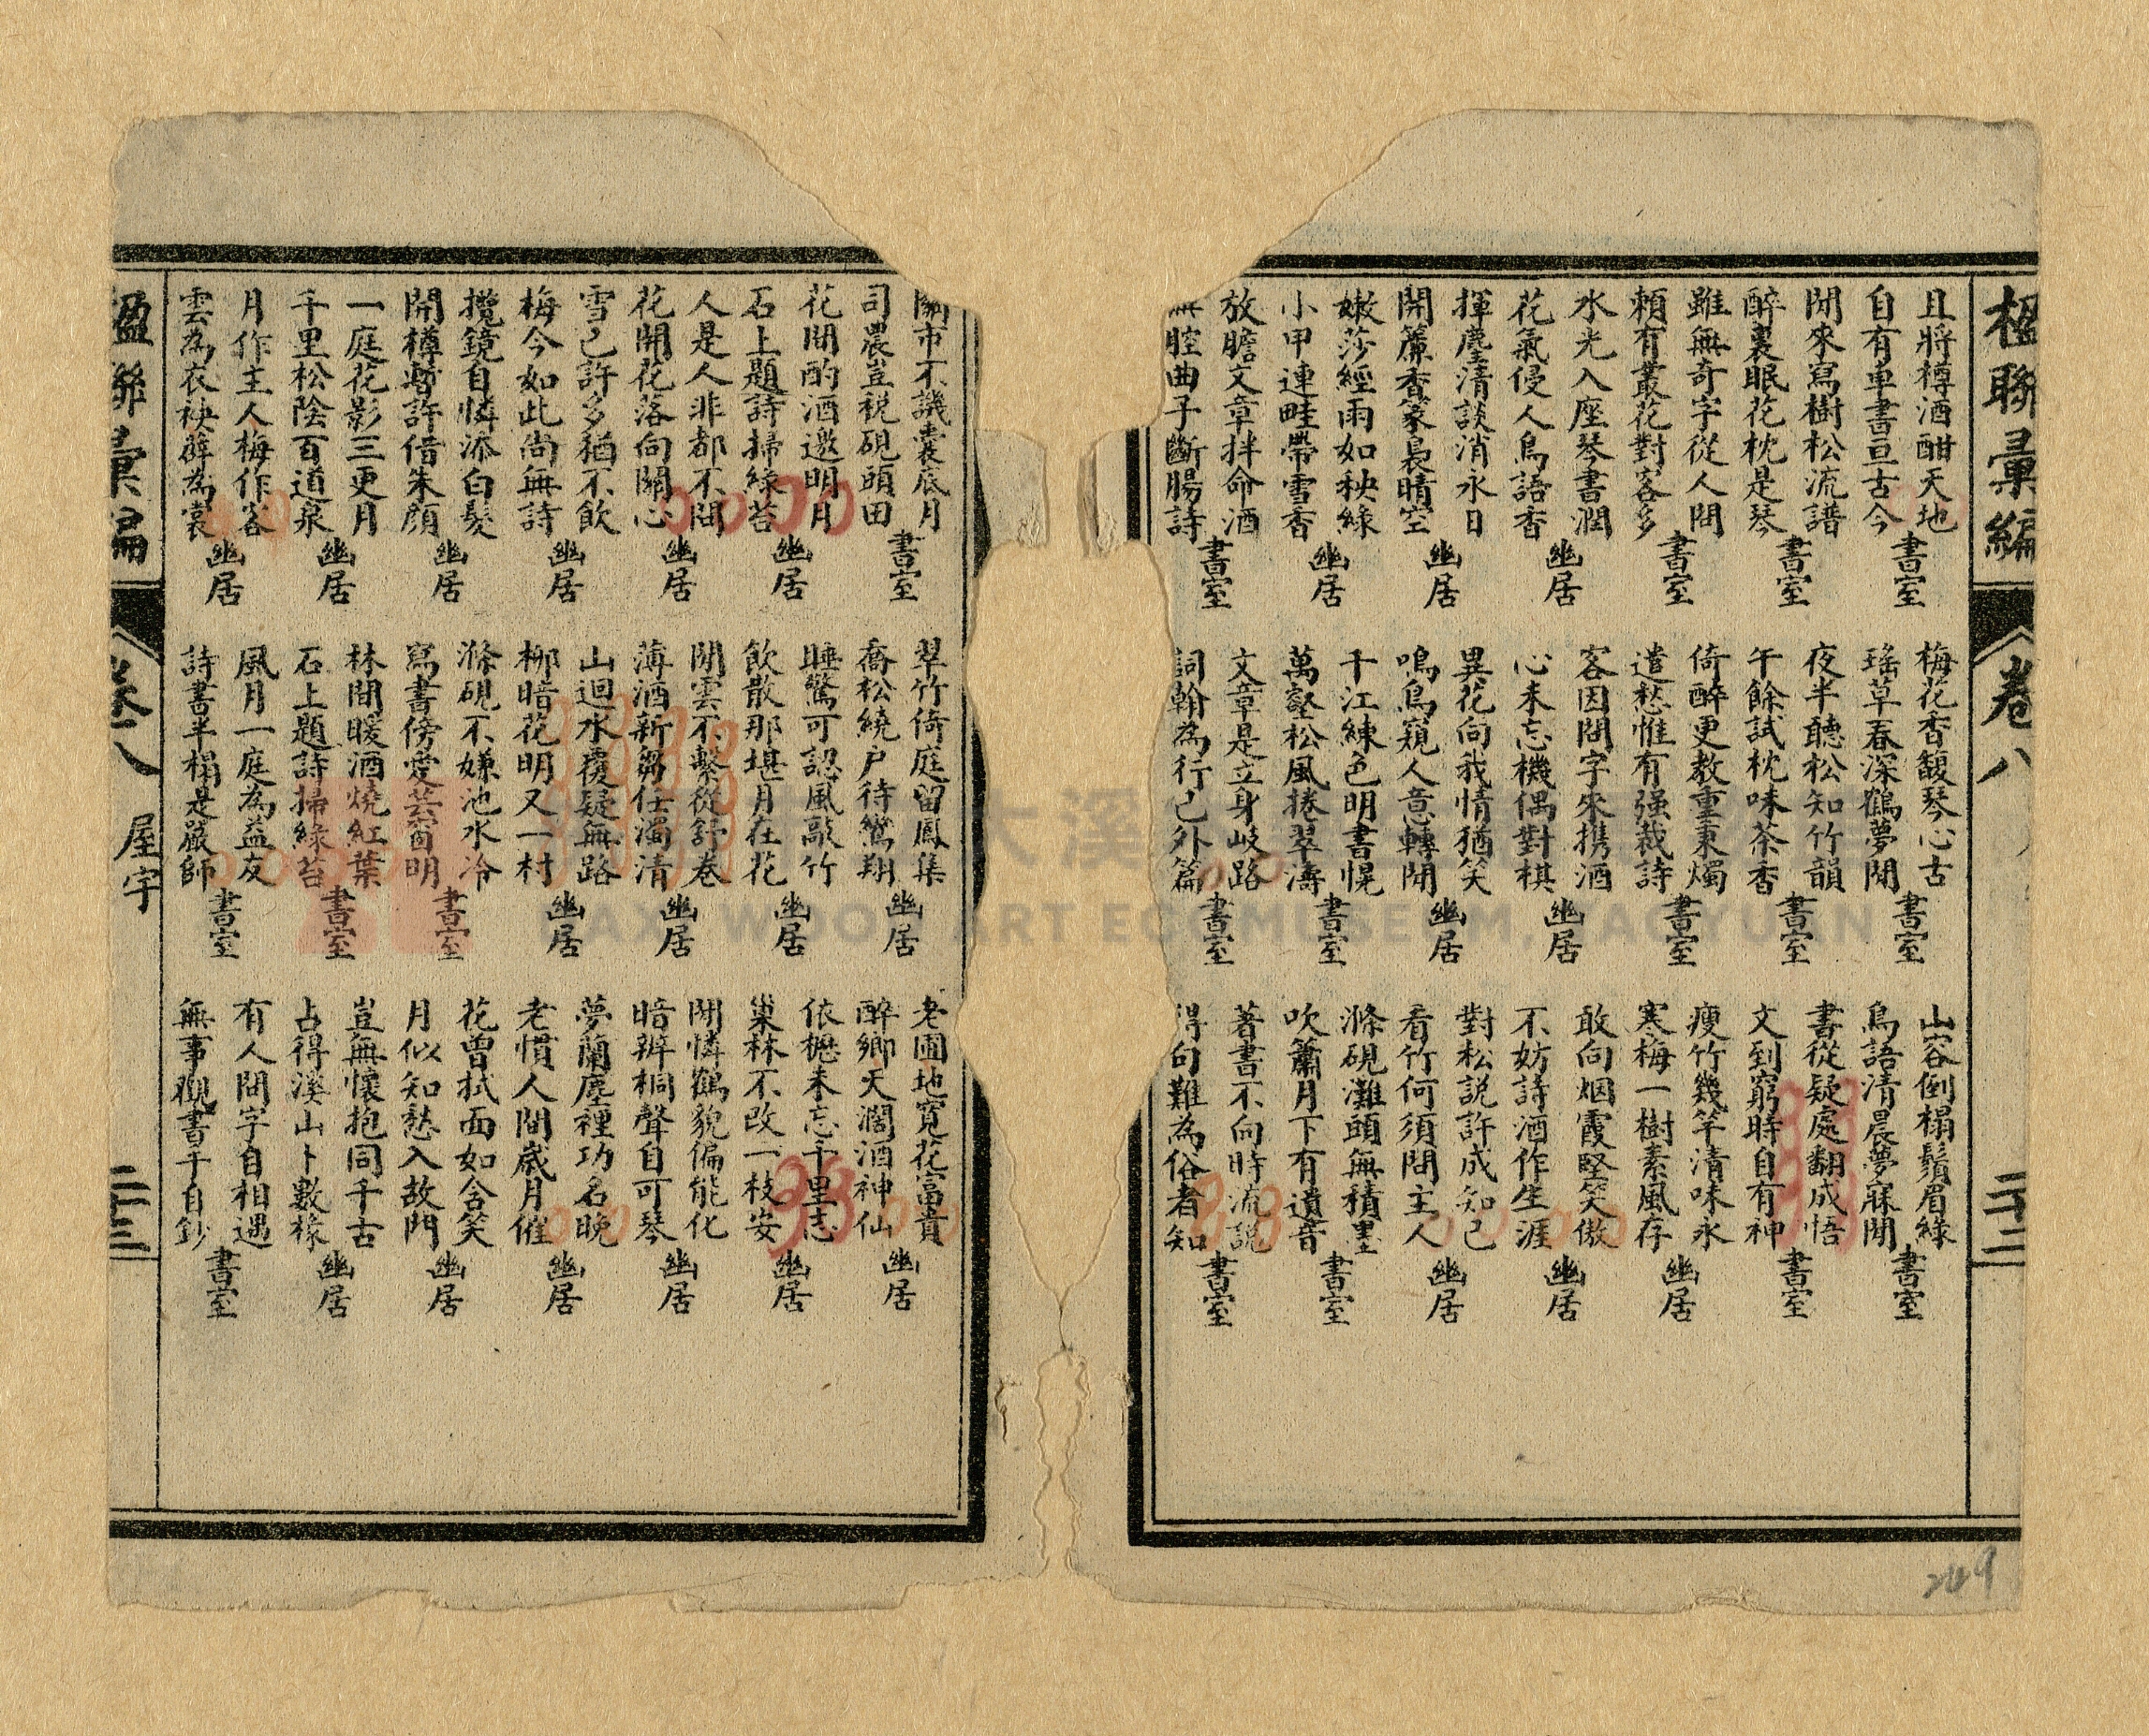 楹聯彙編
卷八
二十二
且將樽酒酣天地
自有車書亘古今
書室
閒來寫樹松流譜
醉裏眠花枕是琴
書室
雖無奇字從人問
賴有叢花對客多
書室
水光入座琴書潤
花氣侵人鳥語香
幽居
揮麈清談消永日
開簾香篆裊晴空
幽居
嫩莎經雨如秧綠
小甲連畦帶雪香
幽居
放膽文章拌命酒
無腔曲子斷腸詩
書室
梅花香馥琴心古
瑤草春深鶴夢閒
書室
夜半聽松知竹韻
午餘試枕味茶香
書室
倚醉更教重秉燭
遣愁惟有强裁詩
書室
客因問字來携酒
心未忘機偶對棋
幽居
異花向我情猶笑
鳴鳥窺人意轉閒
幽居
千江練色明書幌
萬壑松風捲翠濤
書室
文章是立身岐路
詞翰為行己外篇
書室
山容倒榻鬚眉綠
鳥語清晨夢寐閒
書室
書從疑處翻成悟
文到窮時自有神
書室
瘦竹幾竿清味永
寒梅一樹素風存
幽居
敢向烟霞堅笑傲
不妨詩酒作生涯
幽居
對松説許成知己
看竹何須問主人
幽居
滌硯灘頭無積墨
吹簫月下有遺音
書室
著書不向時流説
得句難為俗者知
書室
249
關市不譏囊底月
司農豈税硯頭田
書室
花間酌酒邀明月
石上題詩掃綠苔
幽居
人是人非都不問
花開花落向關心
幽居
雪已許多猶不飲
梅今如此尚無詩
幽居
攬鏡自憐添白髮
開樽暫許借朱顏
幽居
一庭花影三更月
千里松陰百道泉
幽居
月作主人梅作客
雲為衣袂薜為裳
幽居
翠竹倚庭留鳳集
喬松繞户待鸞翔
幽居
睡驚可認風敲竹
飲散那堪月在花
幽居
閒雲不繫從舒卷
薄酒新篘任濁清
幽居
山迴水覆疑無路
柳暗花明又一村
幽居
滌硯不嫌池水冷
寫書傍愛芸窗明
書室
林間暖酒燒紅葉
石上題詩掃綠苔
書室
風月一庭為益友
詩書半榻是嚴師
書室
老圃地寬花富貴
醉鄉天濶酒神仙
幽居
依櫪未忘千里志
巢林不改一枝安
幽居
閒憐鶴貌偏能化
暗辨桐聲自可琴
幽居
夢蘭塵裡功名晚
老慣人間歲月催
幽居
花曾拭面如含笑
月似知愁入故門
幽居
豈無懷抱同千古
占得溪山卜數椽
幽居
有人問字自相遇
無事觀書手自鈔
書室
楹聯彙編
卷八
屋宇
二十三